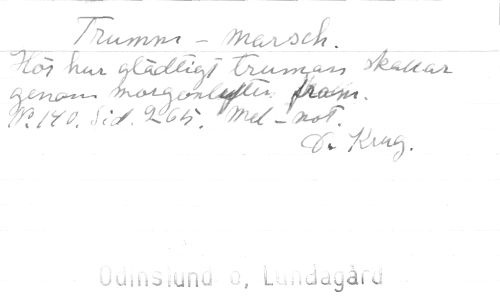 Trumm - marsch.
Hör hur glädligt truman skallar
genom morgonluften fram.
No. 140. Sid. 265. Mel - not.
D. Krug.
Odinslund o, Lundagård